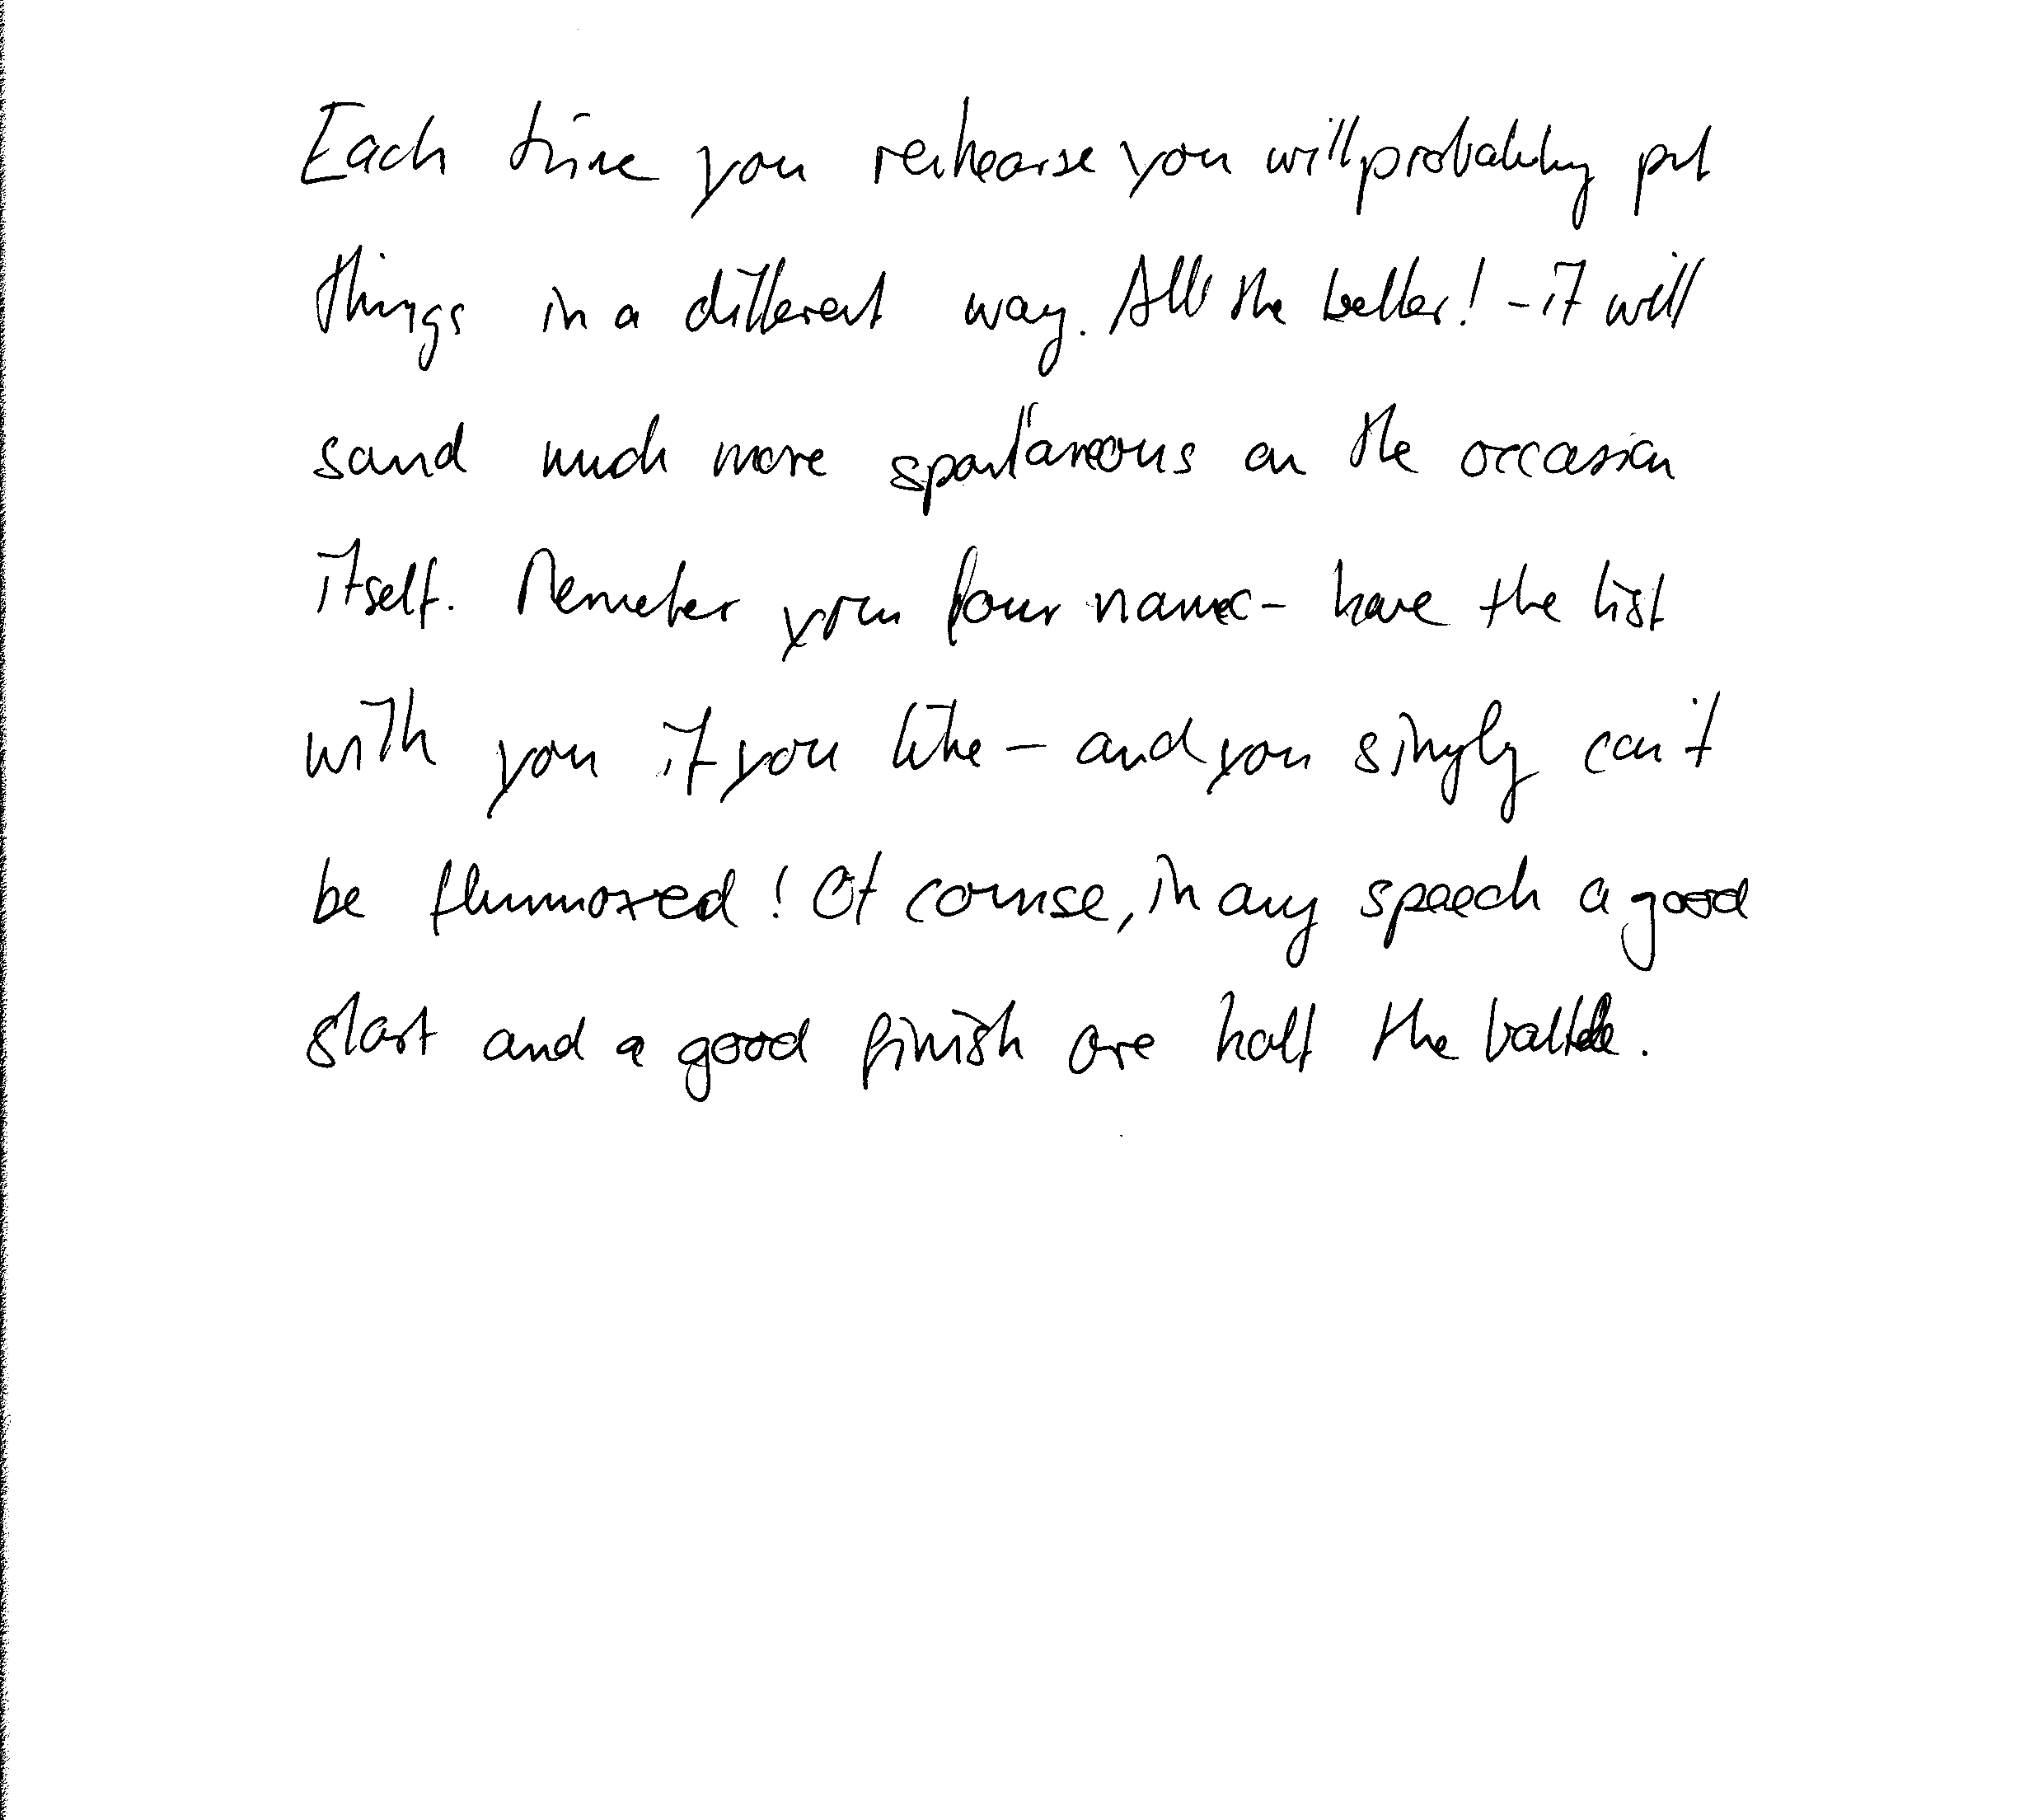 Each time you rehearse you will probably put
things in a different way. All the better! - it will
sound much more spontaneous on the occasion
itself. Remember your four name - have the list
with you if you like - and you simply can't
be flummoxed! Of course, in any speech a good
start and a good finish are half the battle.